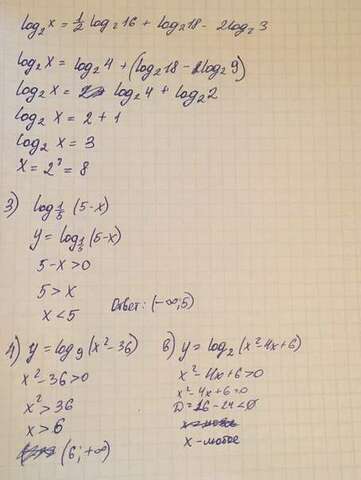 log₂x = 1/2 log₂16 + log₂18 - 2log₂3
log₂x = log₂4 + (log₂18 - log₂9)
log₂x = log₂4 + log₂2
log₂x = 2 + 1
log₂x = 3
x = 2³ = 8
3) log_{1/5}(5-x)
y = log_{1/5}(5-x)
5-x>0
5>x
x<5
Ответ: (-∞;5)
4) y = log₉(x²-36)
x²-36>0
x²>36
x>6
(6;+∞)
в) y = log₂(x²-4x+6)
x²-4x+6>0
x²-4x+6=0
D=16-24<0
x-любое